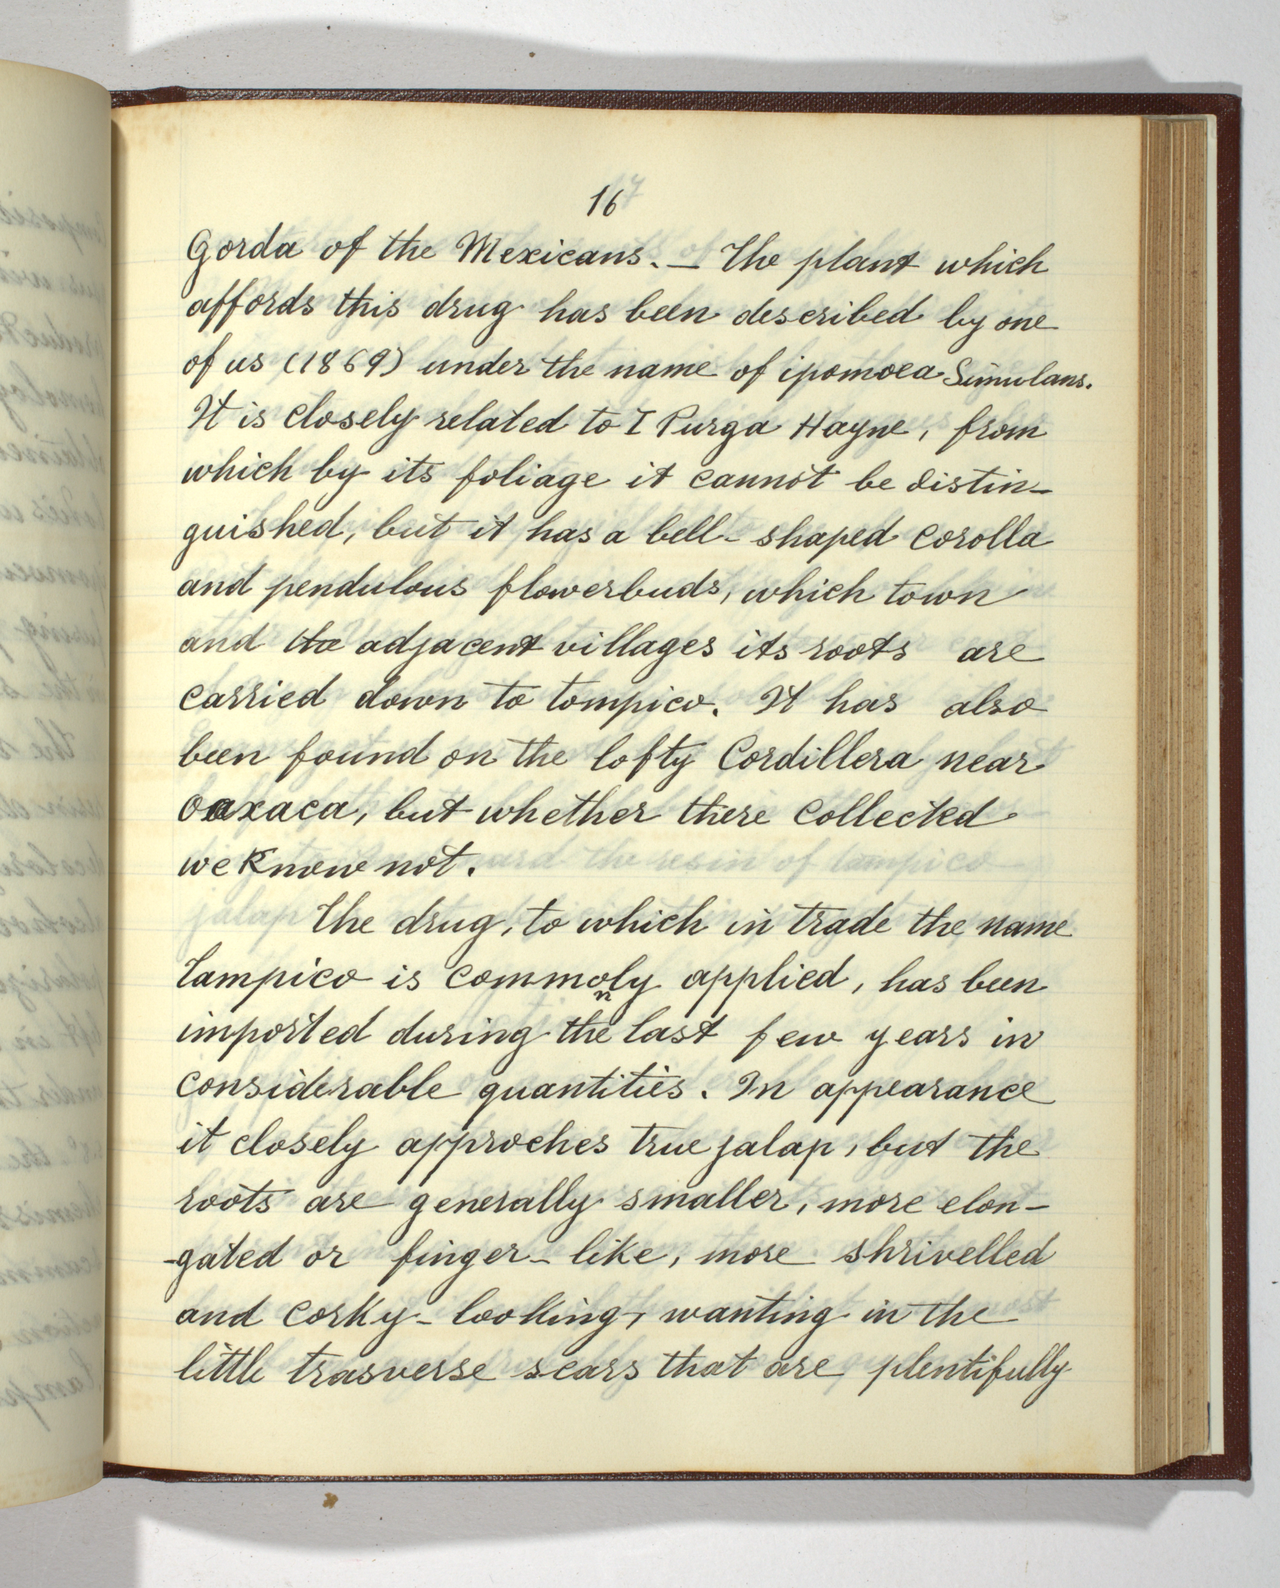 16
Gorda of the Mexicans. — The plant which
affords this drug has been described by one
of us (1869) under the name of ipomoea Simulans.
It is closely related to I Purga Hayne, from
which by its foliage it cannot be distin-
guished, but it has a bell-shaped corolla
and pendulous flowerbuds, which town
and the adjacent villages its roots are
carried down to tompico. It has also
been found on the lofty Cordillera near
Oaxaca, but whether there collected
we Know not.
The drug, to which in trade the name
Tampico is commonly applied, has been
imported during the last few years in
considerable quantities. In appearance
it closely approches true jalap, but the
roots are generally smaller, more elon-
-gated or finger-like, more shrivelled
and corky-looking, wanting in the
little trasverse scars that are plentifully